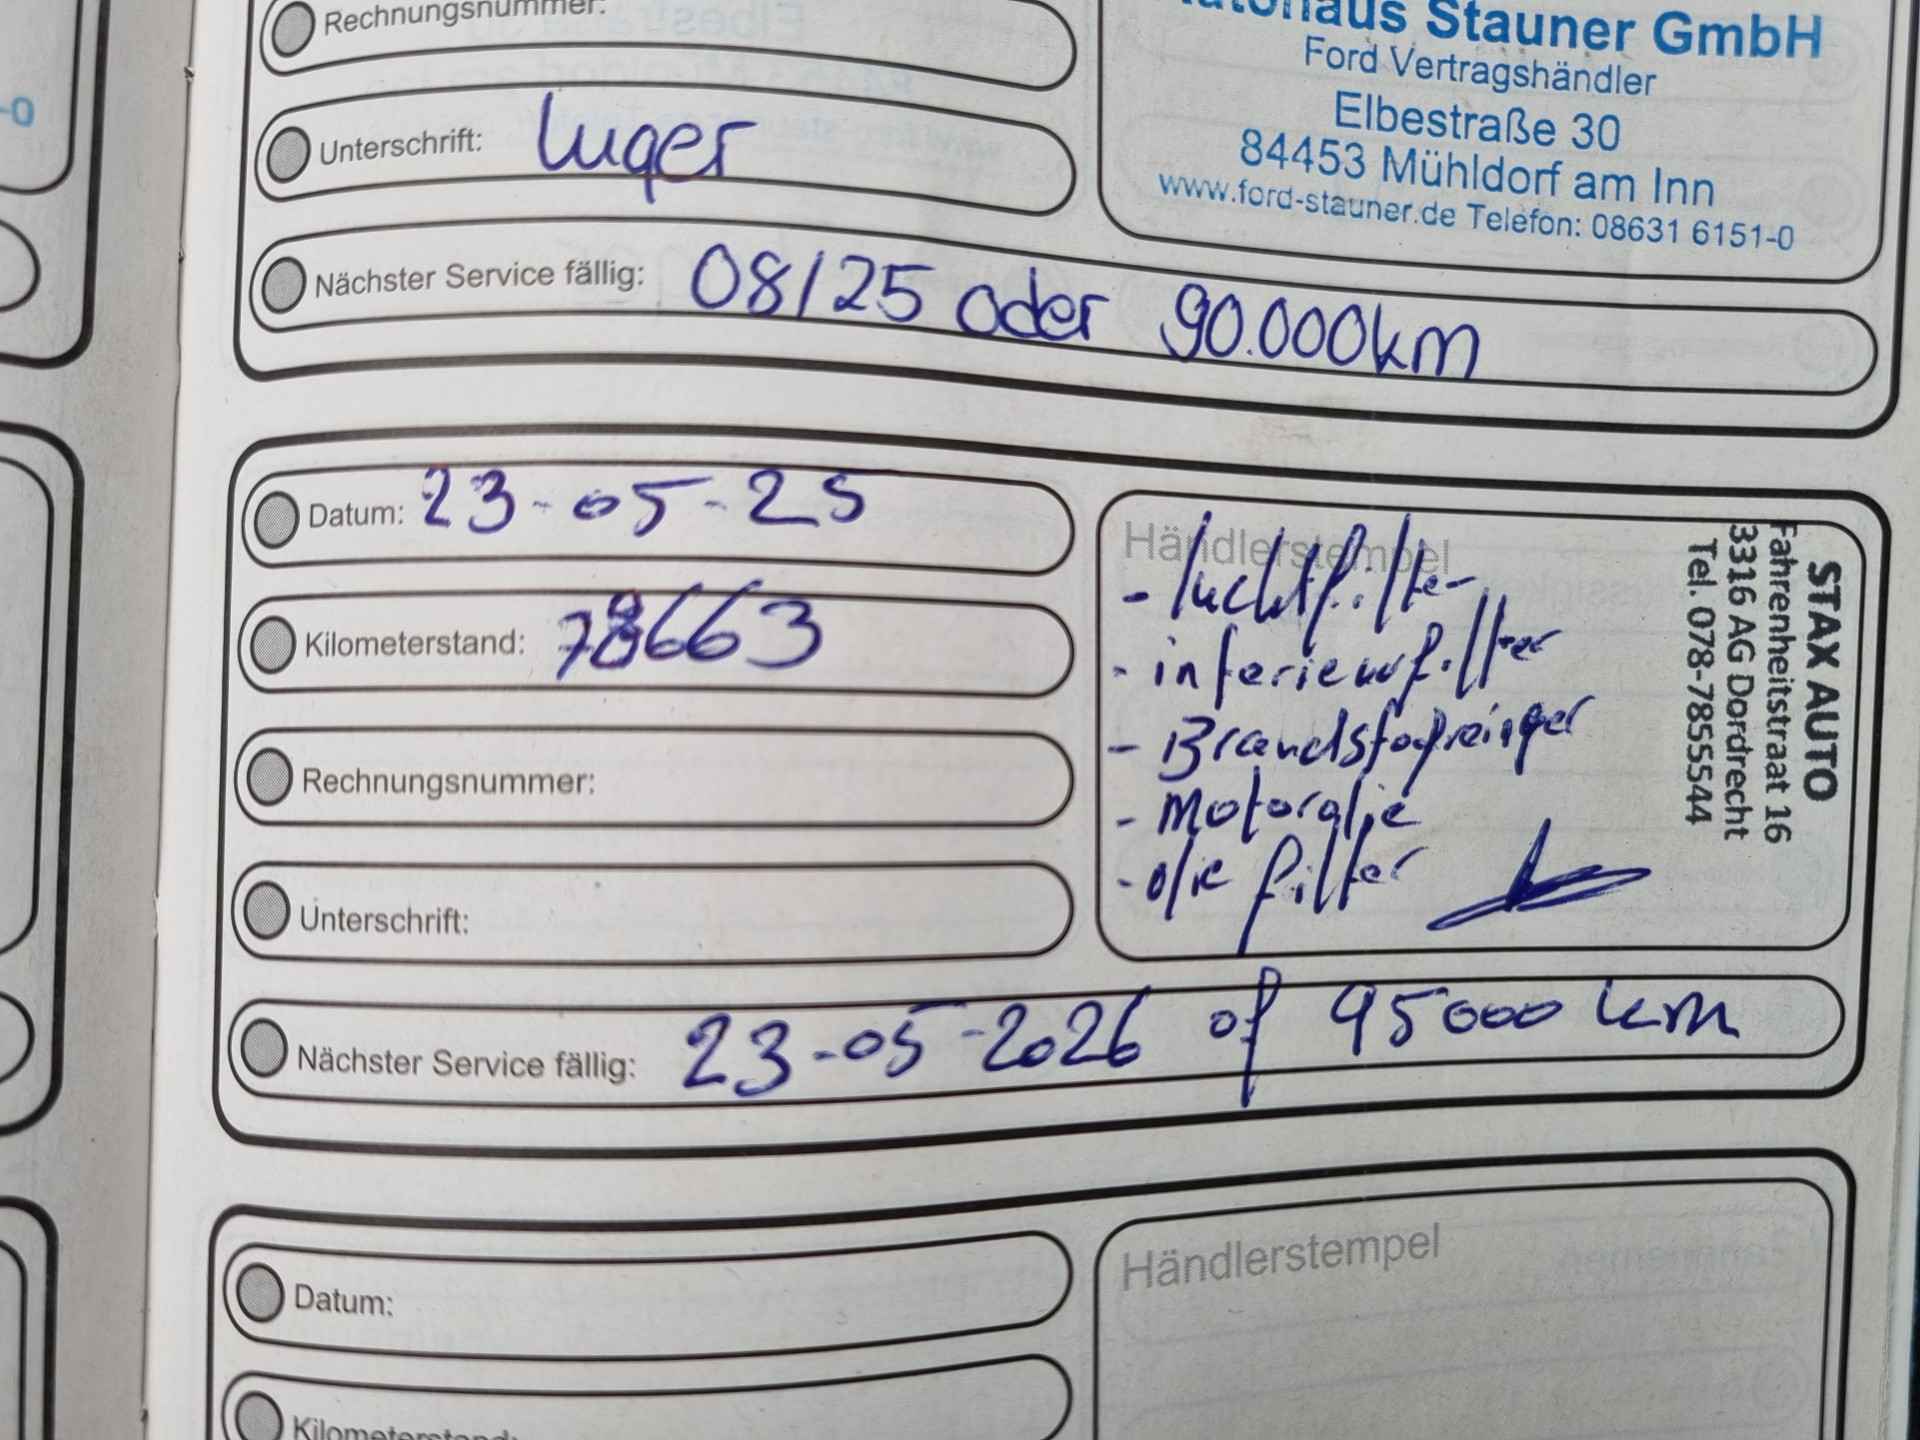 Rechnungsnummer:
Autohaus Stauner GmbH
Ford Vertragshändler
Elbestraße 30
84453 Mühldorf am Inn
www.ford-stauner.de Telefon: 08631 6151-0
Unterschrift: Luger
Nächster Service fällig: 08/25 oder 90.000km
Datum: 23-05-25
Kilometerstand: 78663
Rechnungsnummer:
Unterschrift:
Händlerstempel
- luchtfilter
- interieurfilter
- Brandstofreiniger
- Motorolie
- olie filter
STAX AUTO
Fahrenheitstraat 16
3316 AG Dordrecht
Tel. 078-7855544
Nächster Service fällig: 23-05-2026 of 95000 km
Datum:
Kilometerstand:
Händlerstempel
-0